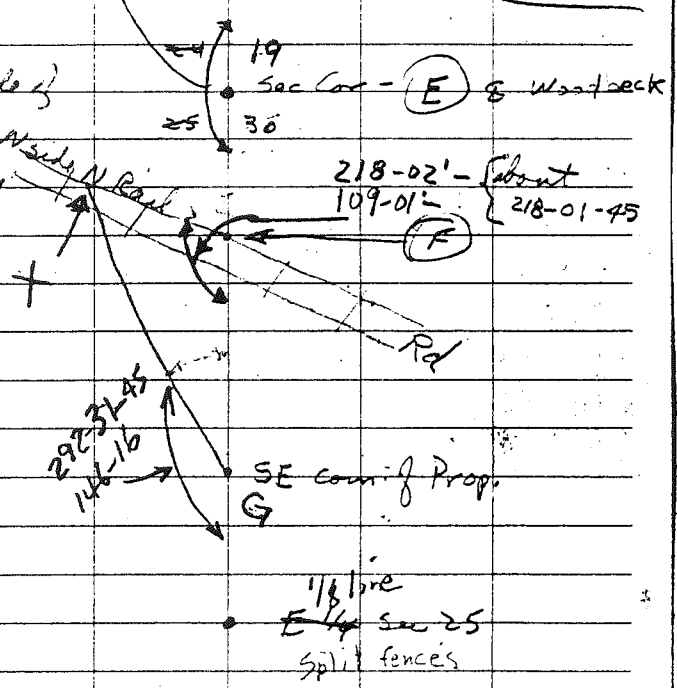 ~~24~~ 19
Sec Cor - E & Woodbeck
~~25~~ 30
N side N Rail
218-02' - { about
109-01' - { 218-01-45
F
Rd
292-31-45
146-16
SE corn. of Prop.
G
1/8 line
~~E 1/4~~ Sec 25
Split fences